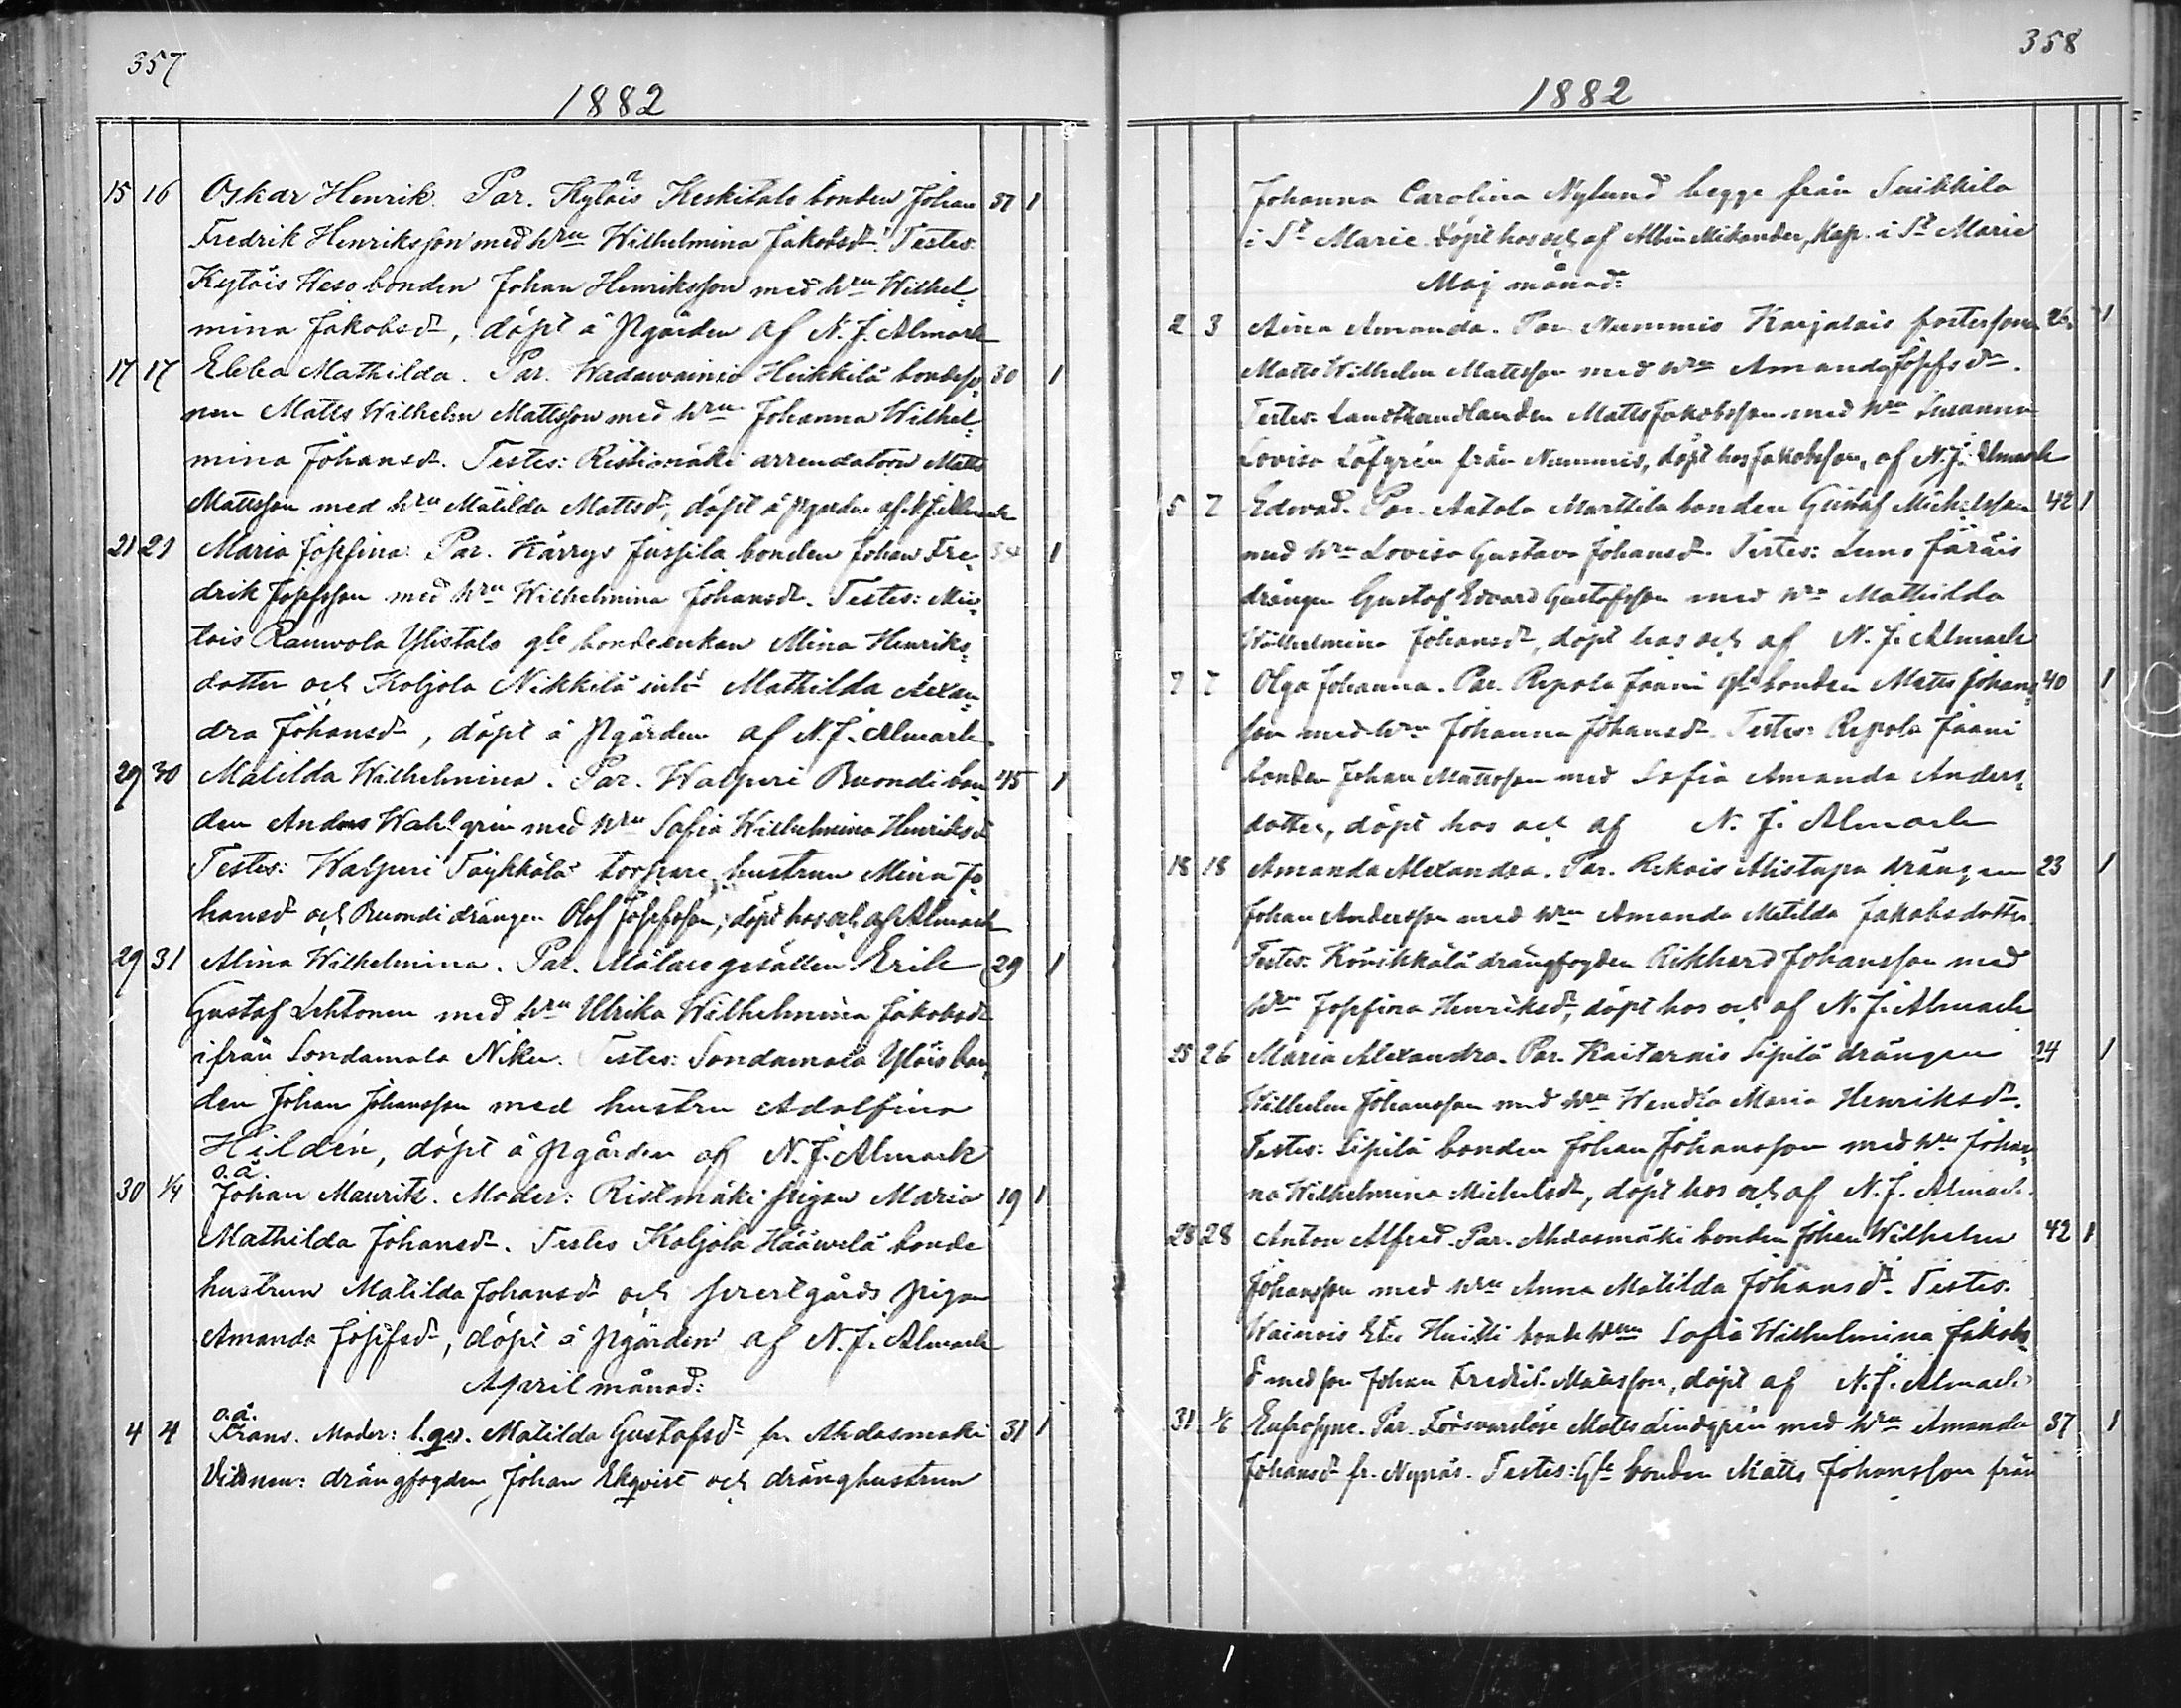 357
1882
15 16 Oskar Henrik. Par. Kyläis Keskitalo bonden Johan 37 1
Fredrik Henriksson med hru Wilhelmina Jakobsdr. Testes:
Kyläis Weso bonden Johan Henriksson med hru Wilhel=
mina Jakobsdr, döpt å Pgården af N. J. Almark
17 17 Ebba Mathilda. Par. Wadawainio Heikkilä bondeso= 30 1
nen Matts Wilhelm Mattsson med hru Johanna Wilhel=
mina Johansdr. Testes: Ristimäki arrendatorn Matts
Mattsson med hru Matilda Mattsdr, döpt å pgården af N. J. Almark
21 21 Maria Josefina. Par. Kärrys Jussila bonden Johan Fre= 34 1
drik Josefsson med hru Wilhelmina Johansdr. Testes: Mie=
tois Rauwola Ylistalo gle bondeenkan Mina Henriks=
dotter och Koljola Nikkilä Mathilda Alexan=
dra Johansdr, döpt å Pgården af N. J. Almark.
29 30 Matilda Wilhelmina. Par. Walperi Ruondi bon= 45 1
den Anders Wahlgrén med hru Sofia Wilhelmina Henriksdr
Testes: Walperi Täykkälä torpare hustrun Mina Jo=
hansdr och Ruondi drängen Olof Josefsson, döpt hos och af Almark
29 31 Alina Wilhelmina. Par. Målare gesällen Erik 29 1
Gustaf Lehtonen med hru Ulrika Wilhelmina Jakobsdr
ifrån Sondamala Niku. Testes: Sondamala Yläis bon=
den Johan Johansson med hustru Adolfina
Hildén, döpt å Pgården af N. J. Almark
o.ä.
30 1/4 Johan Maurits. Moder: Ristmäki pigan Maria 19 1
Mathilda Johansdr. Testes Koljola Hääwelä bonde
hustrun Matilda Johansdr och prestgårds pigan
Amanda Josefsdr, döpt å Pgården af N. J. Almark
April månad:
o.ä.
4 4 Frans. Moder: l.qv. Matilda Gustafsdr fr. Ahdasmäki 31 1
Vittnen: drängfogden Johan Ekqvist och dränghustrun
358
1882
Johanna Carolina Nylund begge från Suikkila
i St Marie. Döpt hos och af Albin Mikander, Kap. i St Marie
Maj månad:
2 3 Aina Amanda. Par. Nummis Karjalais fostersonen 26 1
Matts Wilhelm Mattsson med hru Amanda Josefsdr.
Testes: Landthandlanden Matts Jakobsson med hru Susanna
Lovisa Löfgrén från Nummis, döpt hos Jakobsson, af N. J. Almark
5 7 Edvard. Par. Autola Marttila bonden Gustaf Michelsson 42 1
med hru Lovisa Gustava Johansdr. Testes: Lemo Järäis
drängen Gustaf Edvard Gustafsson med hru Mathilda
Wilhelmina Johansdr, döpt hos och af N. J. Almark
7 7 Olga Johanna. Par. Repola Jaani gle bonden Matts Johans= 40 1
son med hru Johanna Johansdr. Testes: Repola Jaani
bonden Johan Mattsson med Sofia Amanda Anders=
dotter, döpt hos och af N. J. Almark
18 18 Amanda Alexandra. Par. Rekois Alistupa drängen 23 1
Johan Andersson med hru Amanda Matilda Jakobsdotter.
Testes: Könikkälä drängfogden Rikhard Johansson med
hru Josefina Henriksdr, döpt hos och af N. J. Almark
25 26 Maria Alexandra. Par. Kaitarais Sipilä drängen 24 1
Wilhelm Johansson med hru Wendla Maria Henriksdr.
Testes: Sipilä bonden Johan Johansson med hru Johan=
na Wilhelmina Michelsdr, döpt hos och af N. J. Almark
28 28 Anton Alfred. Par. Ahdasmäki bonden Johan Wilhelm 42 1
Johansson med hru Anna Matilda Johansdr. Testes.
Wainois Eters Huitti bonde hru Sofia Wilhelmina Jakobs=
dr med son Johan Fredrik Mattsson, döpt af N. J. Almark
31 1/6 Eufrosyne. Par. Försvarslöse Matts Lindgrén med hru Amanda 37 1
Johansdr fr. Nynäs. Testes: Gle bonden Matts Johansson från